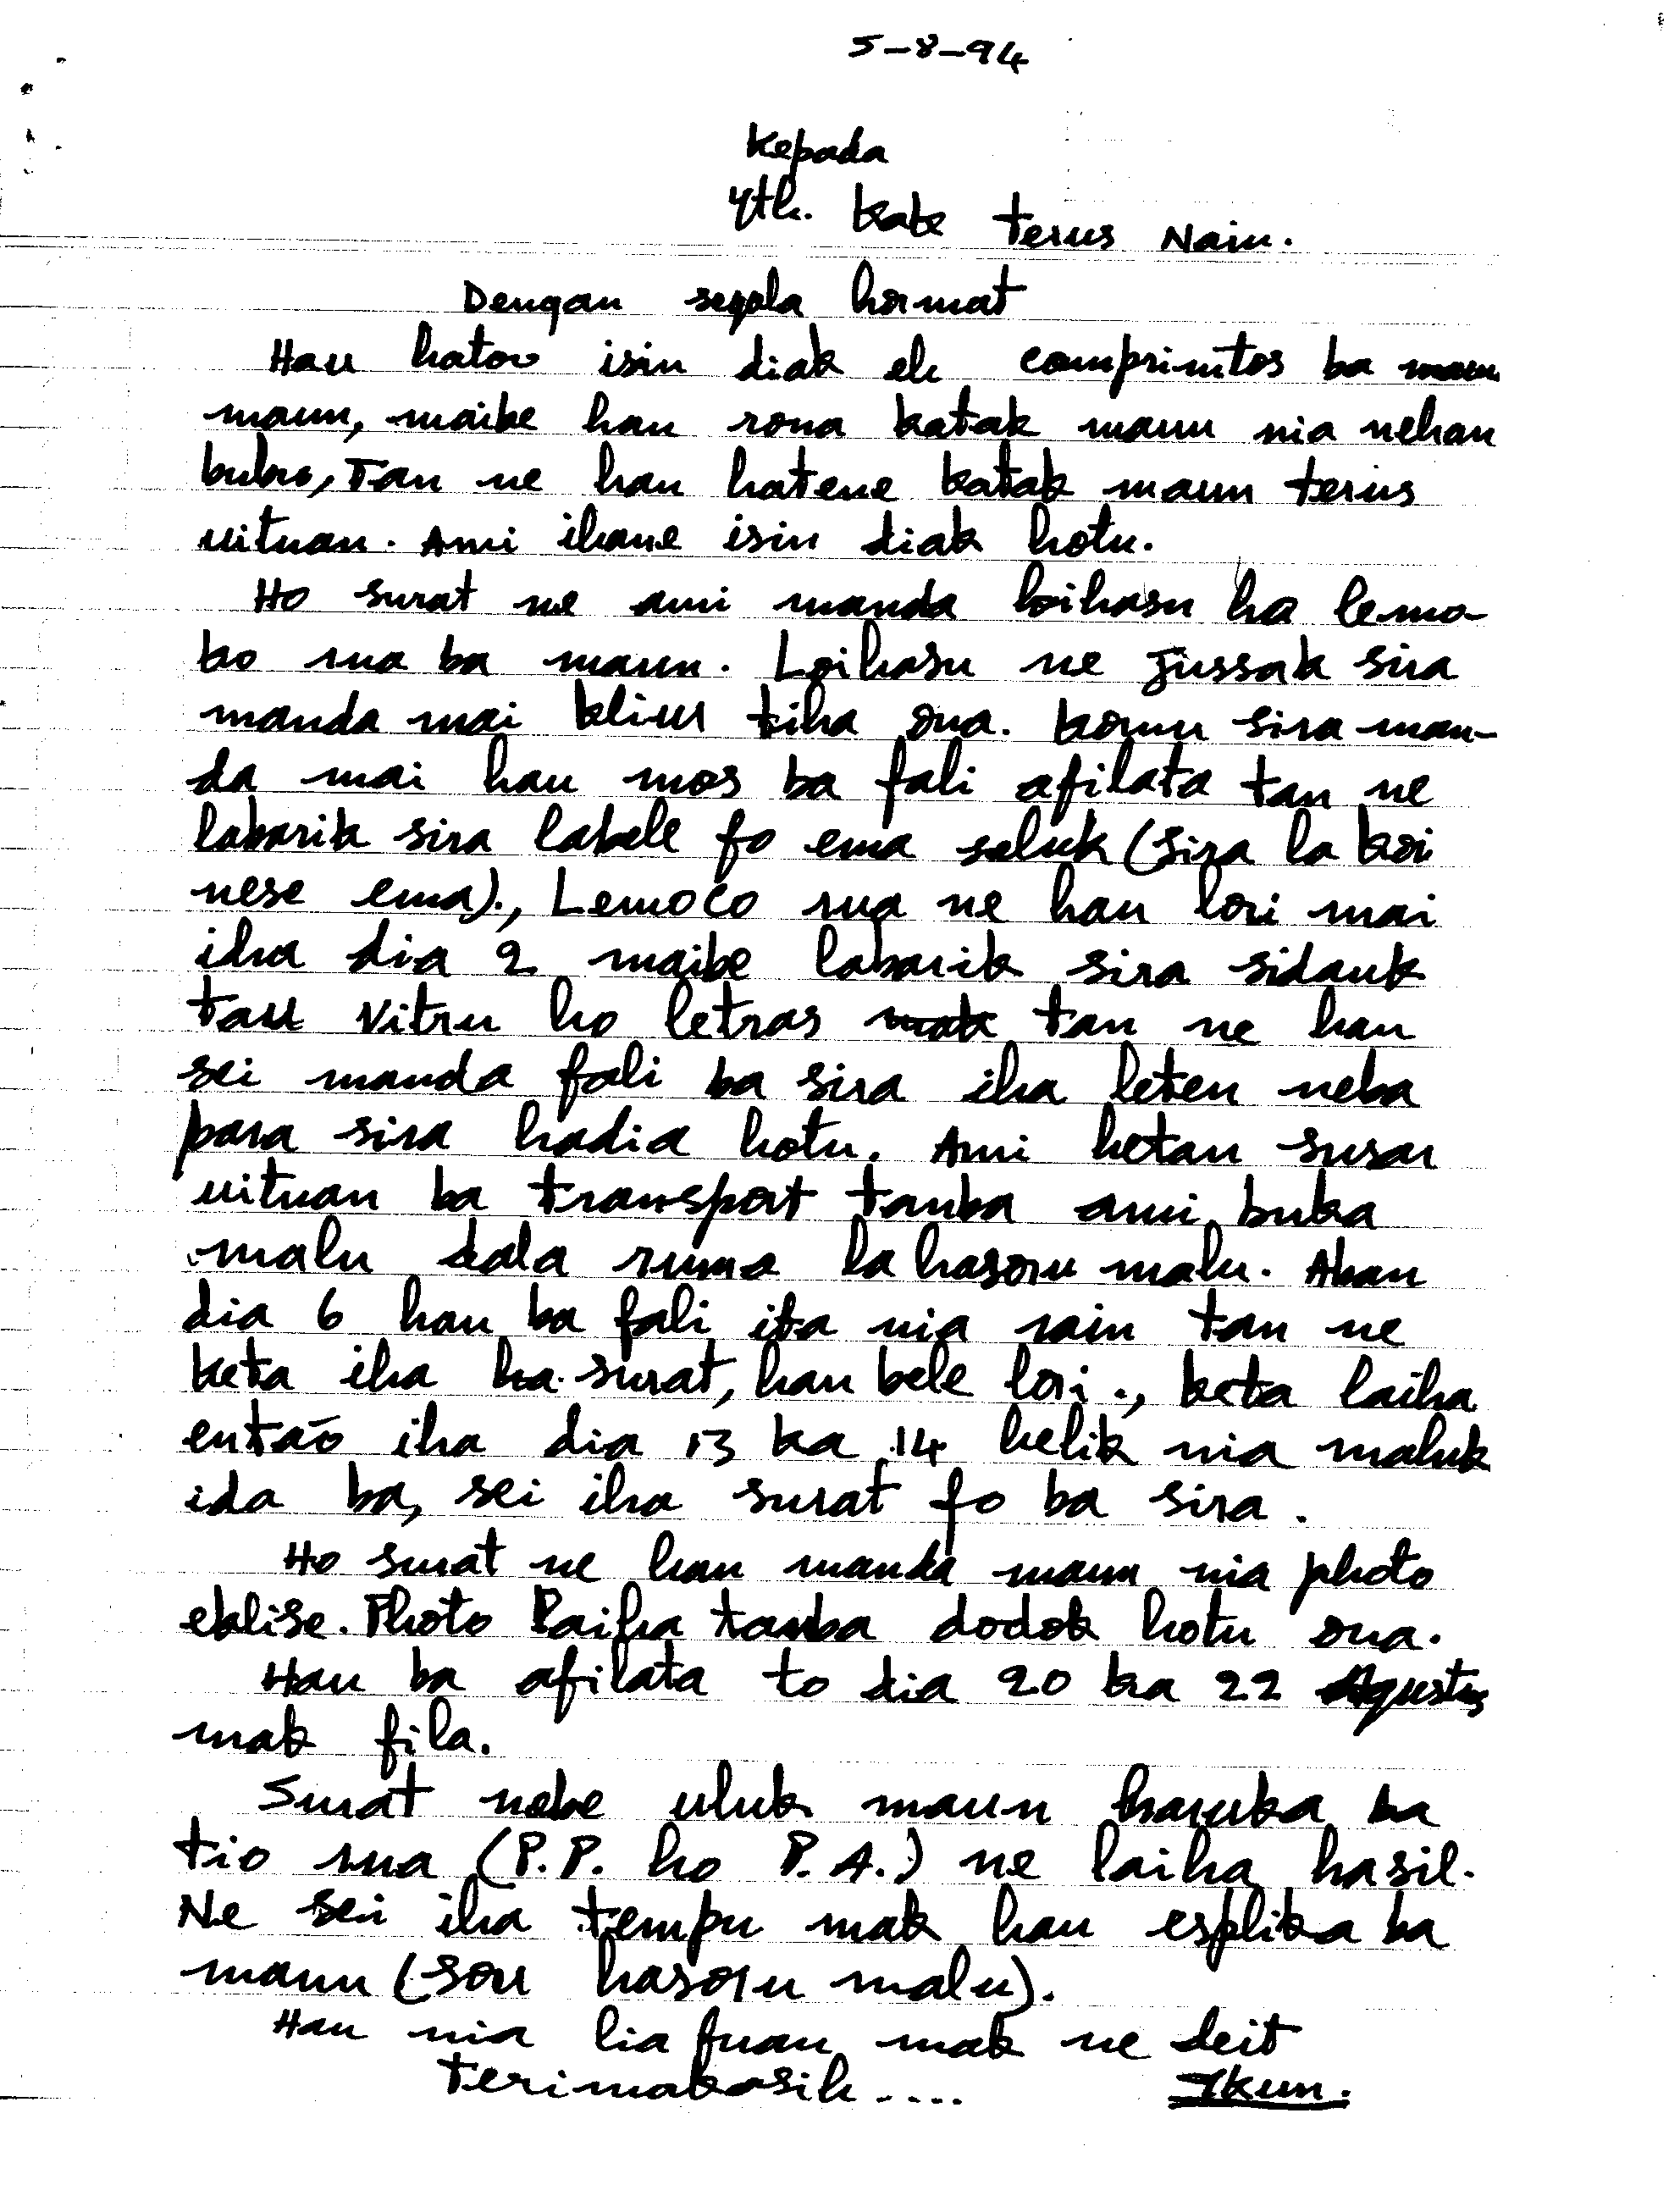 5-8-94
Kepada
Yth. Kate Terus Nain.
Dengan segala hormat
Hau hatoo isin diak eh comprimtos ba
maun, maibe hau rona katak maun nia nehan
bubu, Tan ne hau hatene katak maun terus
uituan. Ami ihane isin diak hotu.
Ho surat ne ami manda loihasu ha lemo-
ko rua ba maun. Loihasu ne Jussak sira
manda mai kliur tiha ona. komu sira man-
da mai hau mos ba fali afilata tan ne
labarik sira labele fo ema seluk (sira la koi
nese ema)., Lemoco rua ne hau lori mai
iha dia 2 maibe labarik sira sidauk
tau vitru ho letras tan ne hau
sei manda fali ba sira iha leten neba
para sira hadia hotu. Ami hetan susar
uituan ba transport tanba ami buka
malu dala ruma la hasoru malu. Aban
dia 6 hau ba fali ita nia rain tan ne
keta iha ka surat, hau bele lori., keta laiha
entaõ iha dia 13 ka 14 helik nia maluk
ida ba, sei iha surat fo ba sira.
Ho surat ne hau manda maun nia photo
eklise. Photo laiha tanba dodok hotu ona.
Hau ba afilata to dia 20 ka 22 Agustus
mak fila.
Surat nebe uluk maun haruka ba
tio rua (P.P. ho P.A.) ne laiha hasil.
Ne sei iha tempu mak hau esplika ba
maun (sou hasoru malu).
Hau nia lia fuan mak ne deit
Terimakasih....
Ikun.